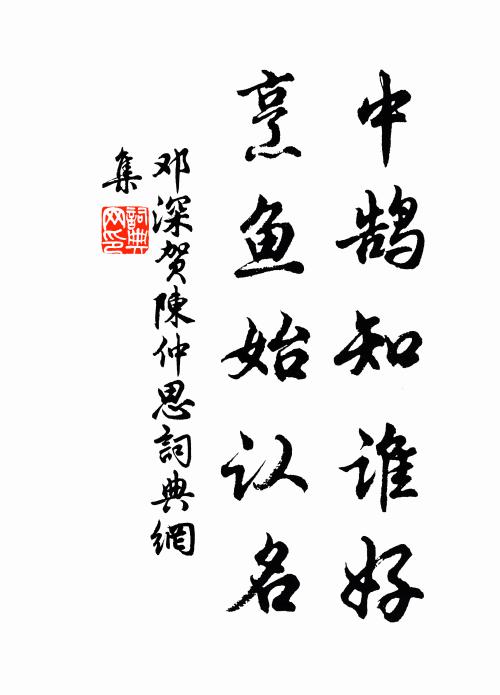 中鹄知谁好
烹鱼始认名
邓深贺陳仲思詞典網
集
詞典网印